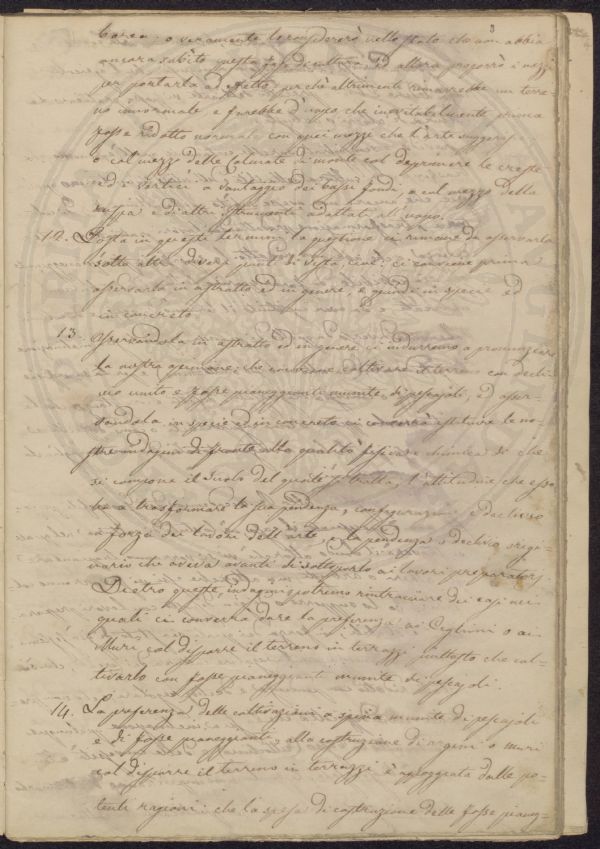 3
o veramente le renderà nello stato che non abbia
ancora subito questa ed allora i mezzi
per portarla ad effetto, perchè altrimenti rimarrebbe un terre-
no innormale, e sarebbe d'uopo che inevitabilmente prima
fosse ridotto normale con quei mezzi che l'arte suggerisce
o col mezzo delle Colmate di monte col deprimere le creste
ed i vertici a vantaggio dei bassi fondi, o col mezzo della
ruspa e di altri strumenti adattati all'uopo.
12. Posta in questi termini la questione ci rimane da osservarla
sotto altri diversi punti di vista, cioè: ci conviene prima
osservarla in astratto ed in genere, e quindi in specie ed
in concreto.
13. Osservandola in astratto ed in genere c'indurremo a pronunziare
la nostra opinione, che conviene coltivare il terreno con decli-
vio unito e fosse pianeggianti munite di pescajoli, ed osser-
vandola in specie ed in concreto ci converrà istituire le no-
stre indagini di fronte alla qualità fisica e chimica di che
si compone il suolo del quale si tratta, l'attitudine che esso
ha a trasformare la sua pendenza, configurazione e declivio
a forza dei lavori dell'arte, e la pendenza o declivio origi-
nario che aveva avanti di sottoporlo ai lavori preparatorj
Dietro queste indagini potremo rintracciare dei casi nei
quali ci converrà dare la preferenza ai Ciglioni o ai
Muri col disporre il terreno in terrazzi piuttosto che col-
tivarlo con fosse pianeggianti munite di pescajoli.
14. La preferenza delle coltivazioni a spina munite di pescajoli
e di fosse pianeggianti, alla costruzione di argini o muri
col disporre il terreno in terrazzi è appoggiata dalle po-
tenti ragioni: che la spesa di costruzione delle fosse pianeg-